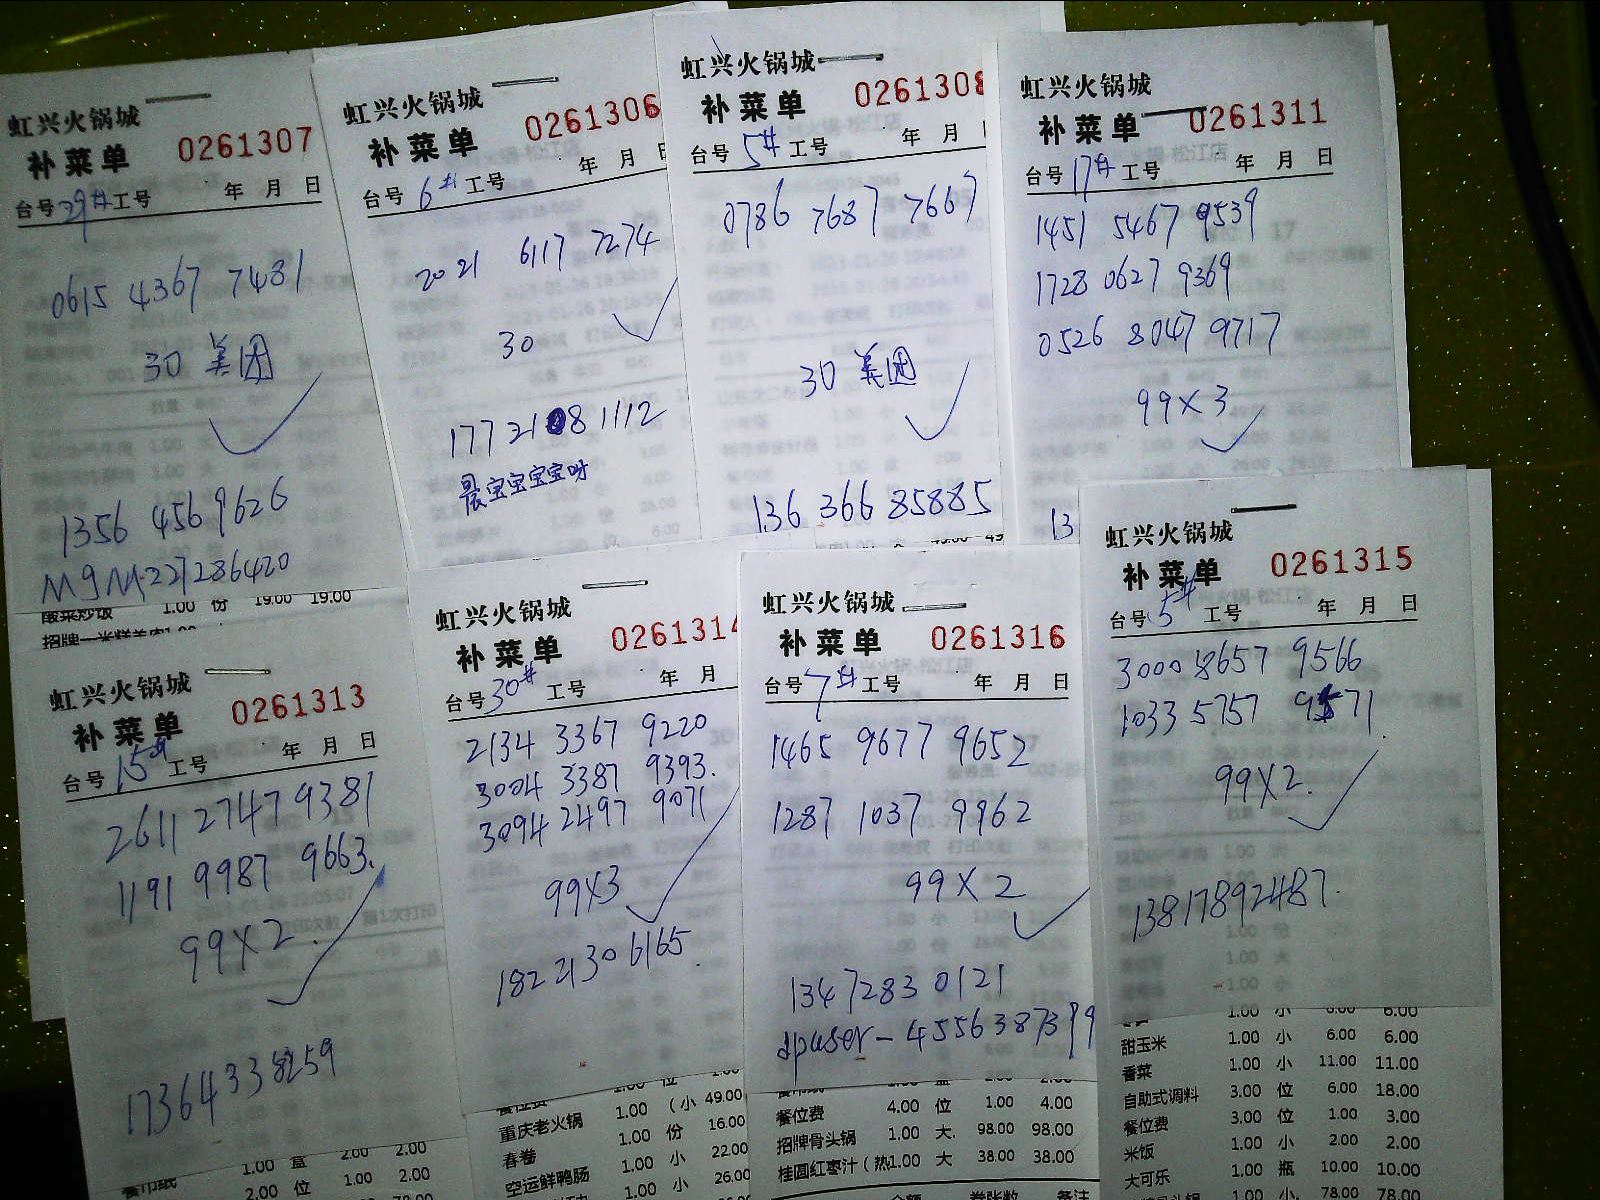 虹兴火锅城
补菜单 0261307
台号 29# 工号 年 月 日
0615 4367 7481
30 美团
1356 456 9626
酸菜炒饭 1.00 份 19.00 19.00
虹兴火锅城
补菜单 0261306
台号 6# 工号 年 月 日
2021 6117 7274
30
177 2108 1112
晨宝宝宝宝呀
虹兴火锅城
补菜单 0261308
台号 5# 工号 年 月
0786 7687 7667
30 美团
136 366 85885
虹兴火锅城
补菜单 0261311
台号 17# 工号 年 月 日
1451 5467 9539
1728 0627 9369
0526 8047 9717
99X3
13
虹兴火锅城
补菜单 0261313
台号 15# 工号 年 月 日
2611 2747 9381
1191 9987 9663.
99X2.
17364338259
1.00 盒 2.00 2.00
2.00 位 1.00 2.00
虹兴火锅城
补菜单 0261314
台号 30# 工号 年 月
2134 3367 9220
3004 3387 9393.
3094 2497 9071
99X3
182 2130 6165.
餐位费
重庆老火锅 1.00 (小 49.00
春卷 1.00 份 16.00
空运鲜鸭肠 1.00 小 22.00
1.00 小 26.00
虹兴火锅城
补菜单 0261316
台号 7# 工号 年 月 日
1465 9677 9652
1287 1037 9962
99X2
1347283 0121
dpuser-4556387399
餐位费 4.00 位 1.00 4.00
招牌骨头锅 1.00 大. 98.00 98.00
桂圆红枣汁(热1.00 大 38.00 38.00
虹兴火锅城
补菜单 0261315
台号 5# 工号 年 月 日
3000 8657 9566
1033 5757 9571.
99X2.
13817892487.
甜玉米 1.00 小 6.00 6.00
香菜 1.00 小 11.00 11.00
自助式调料 3.00 位 6.00 18.00
餐位费 3.00 位 1.00 3.00
米饭 1.00 小 2.00 2.00
大可乐 1.00 瓶 10.00 10.00
1.00 小. 78.00 78.00